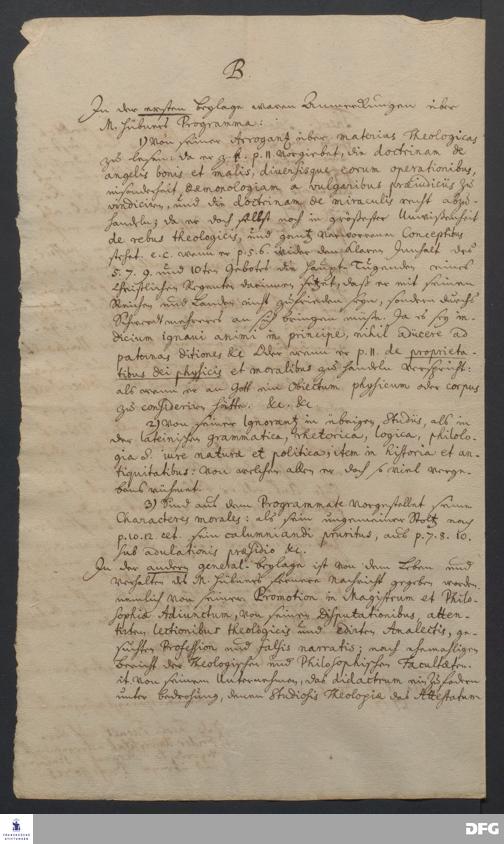 B.
In der ersten beylage waren Anmerckungen über
M. Hübners Programma:
1) Von seiner Arrogantz über materias Theologicas
zu lesen: da er z. E. p. 11. vorgiebet, die doctrinam de
angelis bonis et malis, diversisque eorum operationibus,
insonderheit Daemonologiam a vulgaribus praejudiciis zu
vindiciren, und die doctrinam de miraculis recht abzu-
handeln; da er doch selbst noch in größester Unwißenheit
de rebus theologicis, und gantz verworrenen Conceptibus
stehet. e.c. wenn er p. 5. 6. wider den klaren Innhalt des
5. 7. 9. und 10ten Gebotes die Haupt-Tugenden eines
Christlichen Regenten darinnen setzet, daß er mit seinen
Reichen und Landen nicht zufrieden seyn, sondern durchs
Schwerdt mehreres an sich bringen müße. Ja es sey in-
dicium ignavi animi in principe, nihil adjicere ad
paternas ditiones &c Oder wenn er p. 11. de proprieta-
tibus Dei physicis et moralibus zu handeln verspricht:
als wenn er an Gott ein Objectum physicum oder corpus
zu consideriren hätte. &c. &c.
2) Von seiner Ignorantz in übrigen Studiis, als in
der lateinischen grammatica, rhetorica, logica, philolo-
gia d. iure naturae et politica; item in historia et an-
tiquitatibus: von welchen allen er doch so viel verge-
bens rühmet.
3) Sind aus dem Programmate vorgestellet seine
Characteres morales: als sein ungemeiner Stoltz nach
p. 10. 12. et. sein calumniandi pruritus, aus p. 7. 8. 10.
sub adulationis praesidio &c.
In der andern general-beylage ist von dem Leben und
verhalten des M. Hübners fernere Nachricht gegeben worden
nemlich von seiner Promotion in Magistrum et Philo-
sophiae Adjunctum, von seinen Disputationibus, atten-
tirten lectionibus theologicis und edirten Analectis, ge-
suchter Profession und falsis narratis; nach ehemahligen
bericht der Theologischen und Philosophischen Facultaeten.
it. von seinem Unternehmen, das didactrum einzufodern
unter bedrohung, denen Studiosis Theologiae das Attestatum
FRANCKESCHE STIFTUNGEN
DFG